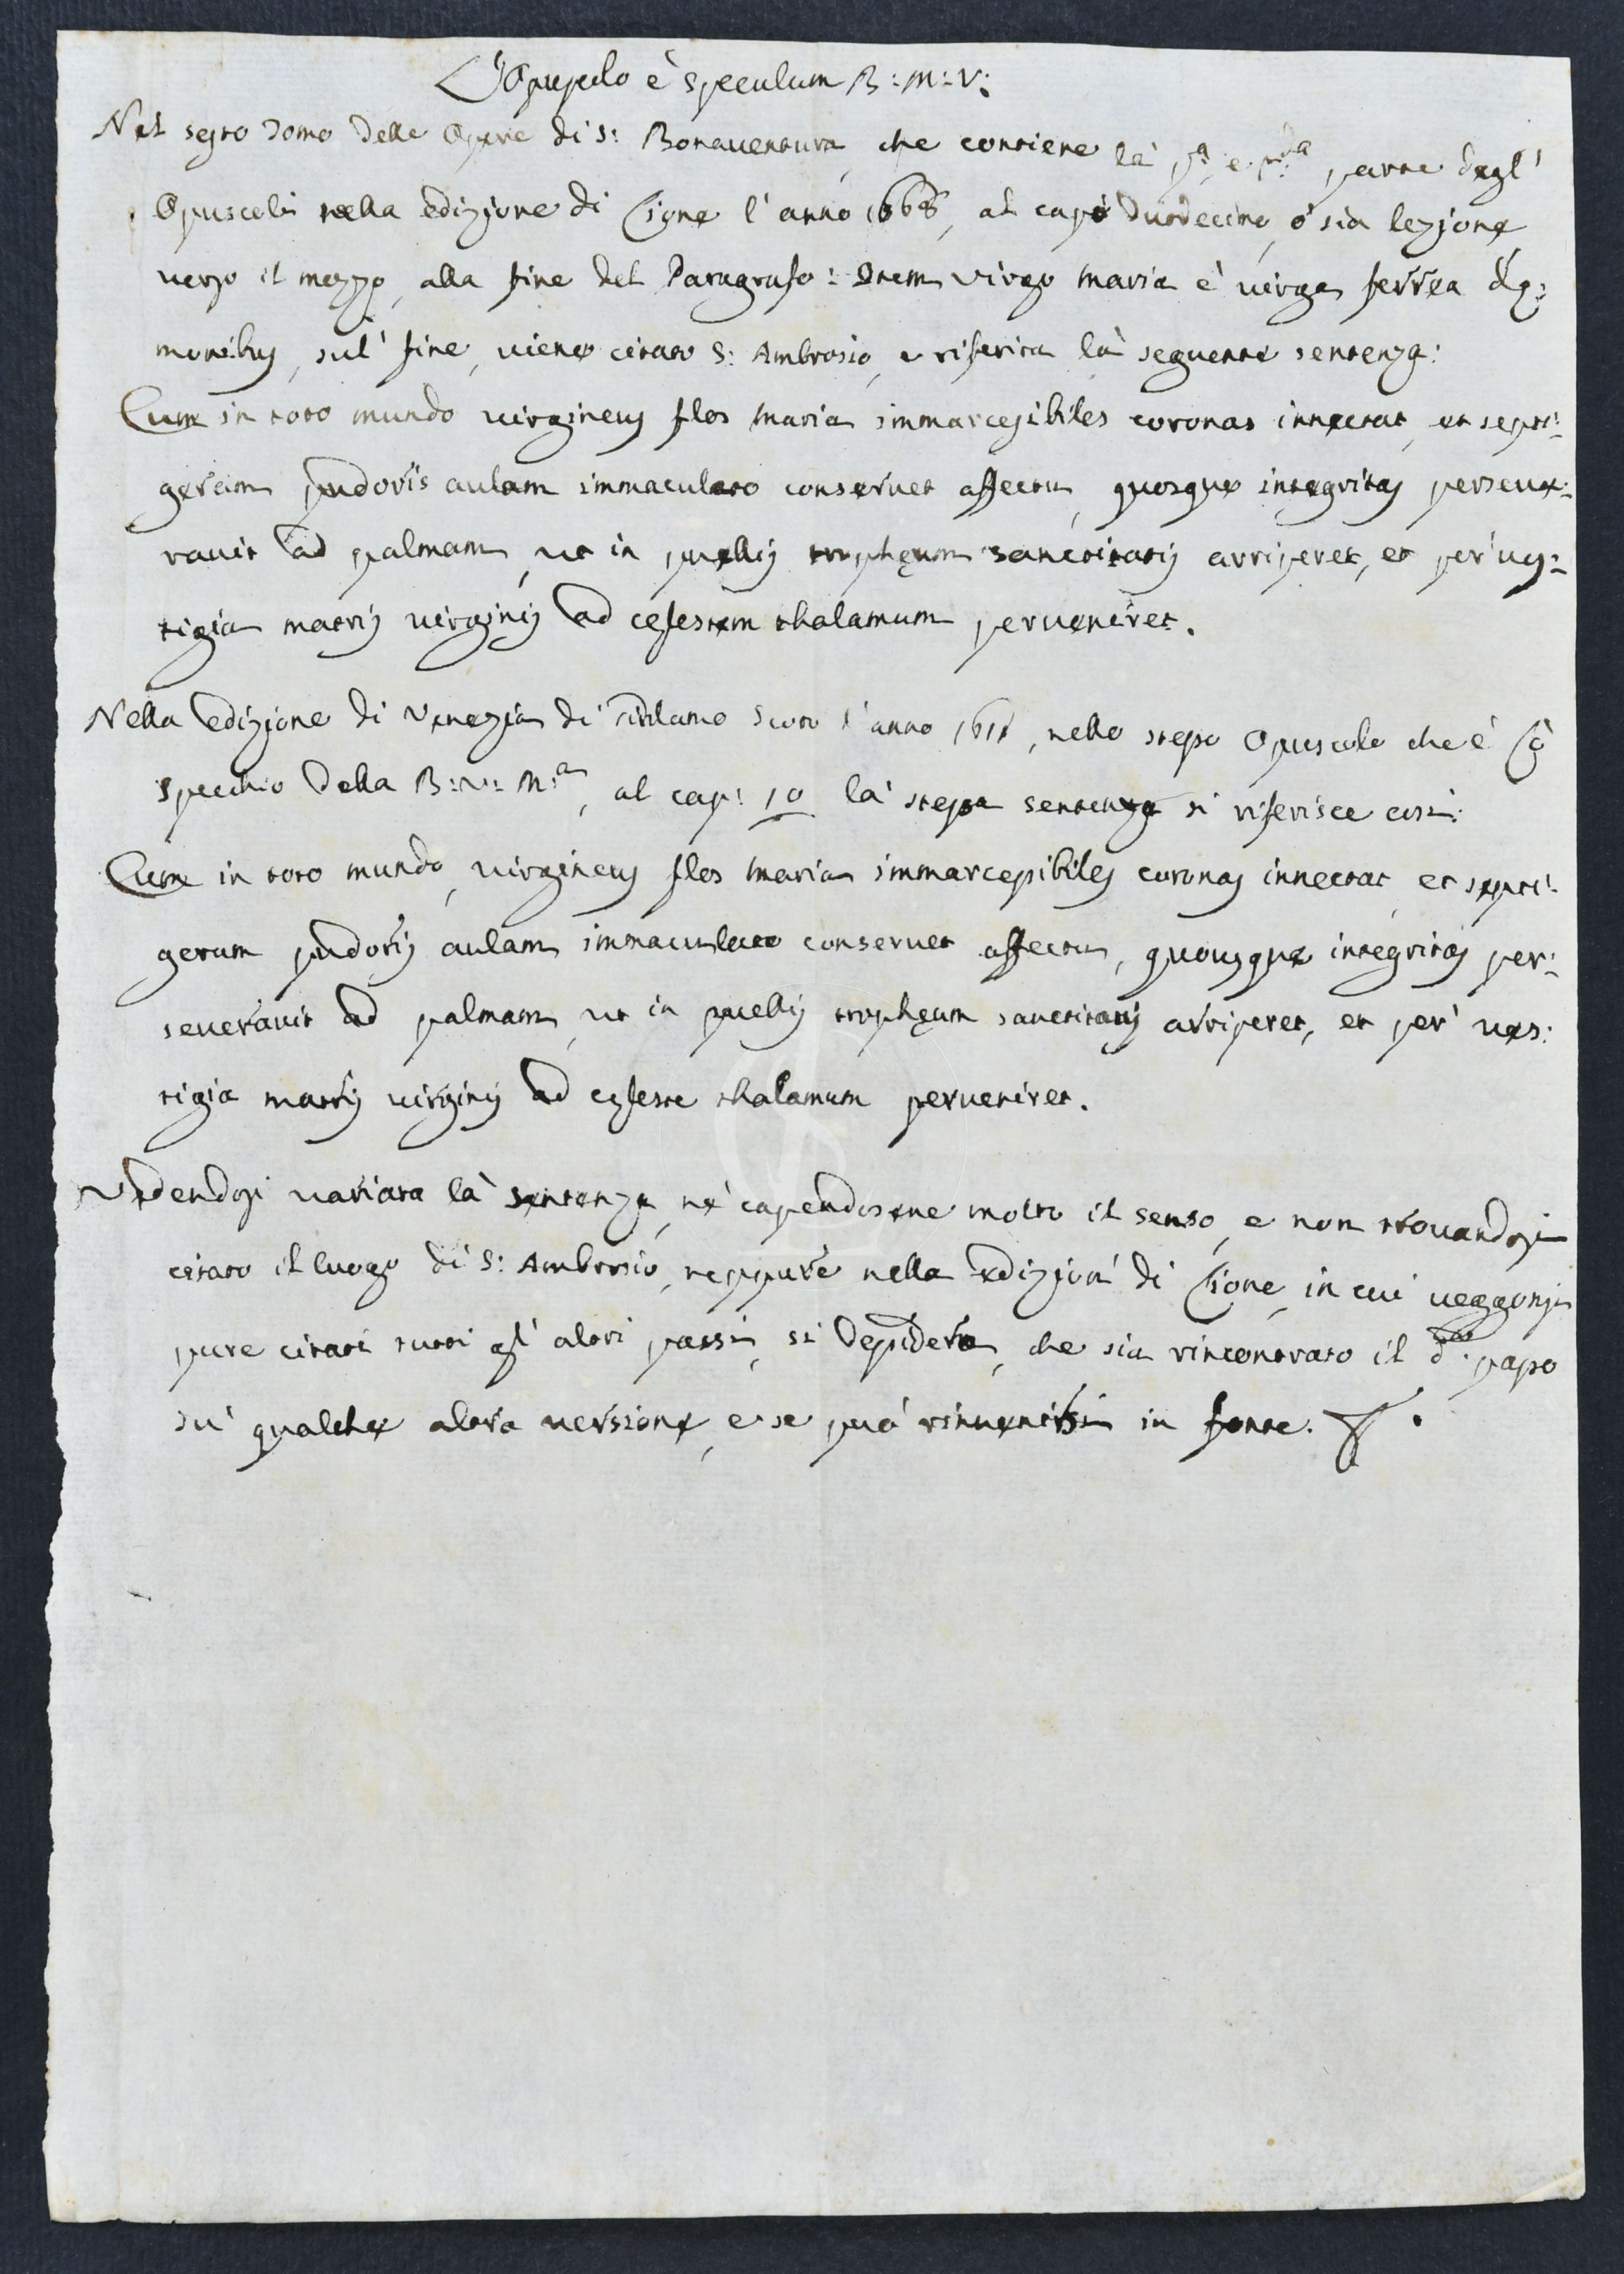 L'Opuscolo è Speculum B: M: V:
Nel sesto Tomo delle Opere di S: Bonaventura, che contiene la pa e parte degl'
Opuscoli nella Edizione di Lione l'anno 1668, al capo duodecimo, o' sia lezione
verso il mezzo, alla fine del Paragrafo: Item Virgo Maria è virga ferrea dę:
monibus, sul' fine, viene citato S: Ambrosio, e riferita là seguente sentenza:
Cum in toto mundo virgineus flos Maria immarcessibiles coronas innectat, et septi:
geram pudoris aulam immaculato conservet affectu, quosque integritas perseve:
ravit ad palmam, ut in puellis trophęum sanctitatis arriperet, et per' ves:
tigia matris virginis ad cęlestem thalamum perveniret.
Nella Edizione di Venezia di Scoto l'anno 1611, nello stesso Opuscolo che è lo
Specchio della B: V: Ma, al cap: 10 la stessa sentenza si riferisce così:
Cum in toto mundo, virgineus flos Maria immarcessibiles coronas innectat, et septi:
geram pudoris aulam immaculato conservet affectu, quousque integritas per:
severavit ad palmam, ut in puellis trophęum sanctitatis arriperet, et per' ves:
tigia matris virginis ad cęleste thalamum perveniret.
Vedendosi variata là sentenza, nè capendosene molto il senso, e non trovandosi
citato il luogo di S: Ambrosio, neppure nella Edizion' di Lione, in cui veggonsi
pure citati tutti gl' altri passi, si desidera, che sia rincontrato il do. passo
su' qualche altra versione, e se può rinvenirsi in fonte.